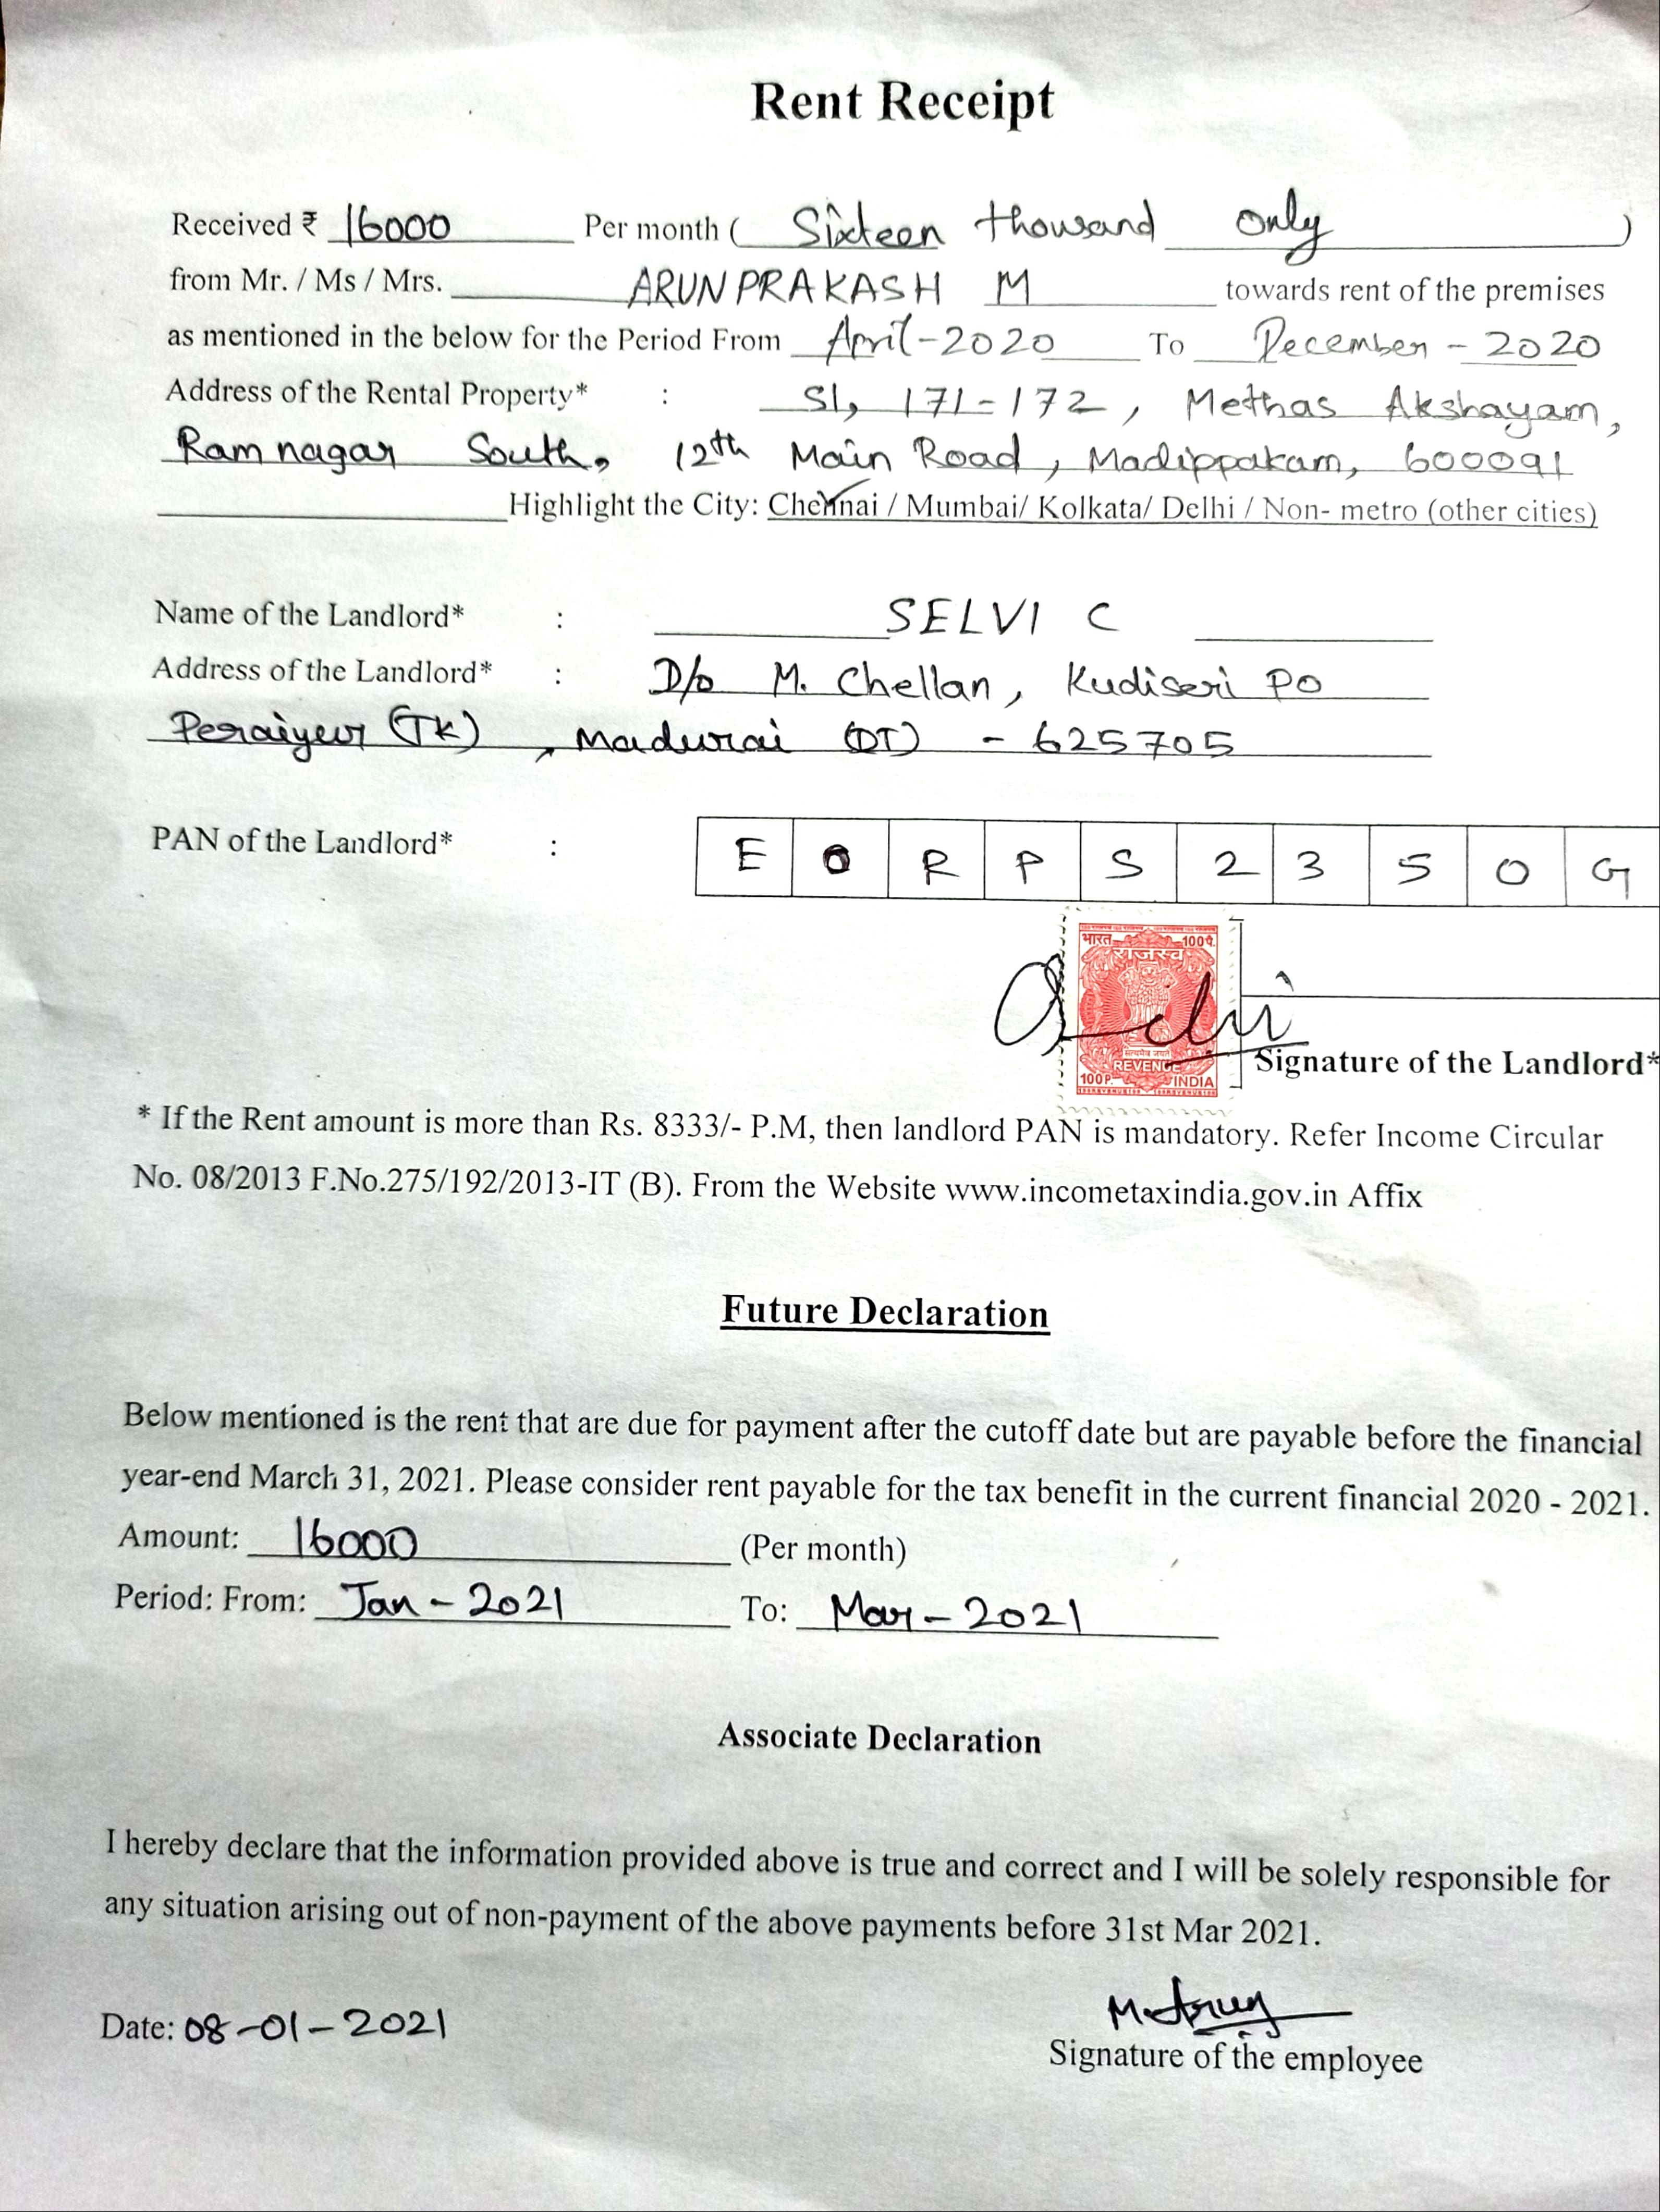 Rent Receipt
Received ₹ 16000 Per month ( Sixteen thousand only )
from Mr. / Ms / Mrs. ARUNPRAKASH M towards rent of the premises
as mentioned in the below for the Period From April-2020 To December - 2020
Address of the Rental Property* : S1, 171-172, Methas Akshayam,
Ram nagar South, 12th Main Road, Madippakam, 600091
Highlight the City: Chennai / Mumbai/ Kolkata/ Delhi / Non- metro (other cities)
Name of the Landlord* : SELVI C
Address of the Landlord* : D/o M. Chellan, Kudiseri PO
Peraiyur (TK), Madurai (DT) - 625705
PAN of the Landlord* : E O R P S 2 3 5 0 G
भारत 100पै.
राजस्व
सत्यमेव जयते
REVENUE
100P. INDIA
Signature of the Landlord*
* If the Rent amount is more than Rs. 8333/- P.M, then landlord PAN is mandatory. Refer Income Circular
No. 08/2013 F.No.275/192/2013-IT (B). From the Website www.incometaxindia.gov.in Affix
Future Declaration
Below mentioned is the rent that are due for payment after the cutoff date but are payable before the financial
year-end March 31, 2021. Please consider rent payable for the tax benefit in the current financial 2020 - 2021.
Amount: 16000 (Per month)
Period: From: Jan - 2021 To: Mar - 2021
Associate Declaration
I hereby declare that the information provided above is true and correct and I will be solely responsible for
any situation arising out of non-payment of the above payments before 31st Mar 2021.
M. Arun
Date: 08-01-2021
Signature of the employee